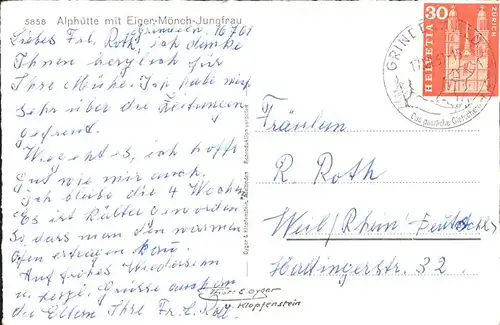 5858 Alphütte mit Eiger-Mönch-Jungfrau
Grindeln, 16/7 61
Liebes Frl. Roth, ich danke
Ihnen herzlich für
Ihre Mühe. Ich habe mich
sehr über die Zeitungen
gefreut.
Wie geht es, ich hoff
gut wie mir auch.
Ich bleibe die 4 Wochen
Es ist kälter geworden
so dass man den warmen
Ofen ertragen kan.
Auf frohes Wiedersehn
u. herzl. Grüsse auch an
die Eltern Ihre Fr. L.
Gyger & Klopfenstein, Adelboden Reproduktion verboten
Phot. E. Gyger
A. Klopfenstein
30
HELVETIA
ZÜRICH
GRINDELWALD
Das gastliche Gletscherdorf
Fräulein
R. Roth
Weil/Rhein Deutschl.
Haltingerstr. 32.